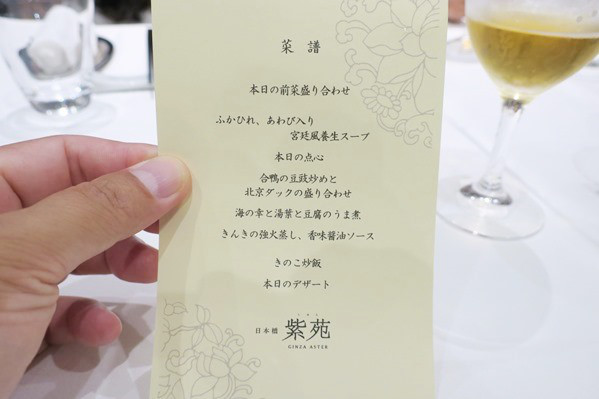 菜譜
本日の前菜盛り合わせ
ふかひれ、あわび入り
宮廷風養生スープ
本日の点心
合鴨の豆豉炒めと
北京ダックの盛り合わせ
海の幸と湯葉と豆腐のうま煮
きんきの強火蒸し、香味醤油ソース
きのこ炒飯
本日のデザート
しおん
日本橋 紫苑
GINZA ASTER